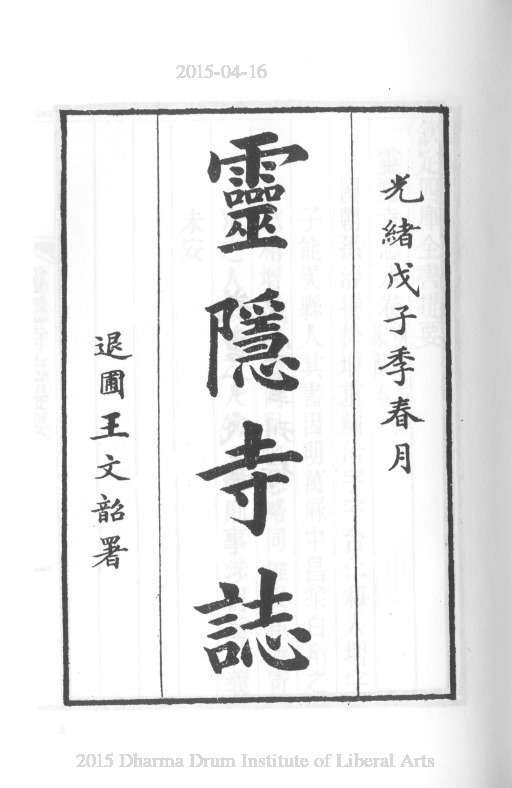 2015-04-16
光緒戊子季春月
靈隱寺誌
退圃王文韶署
2015 Dharma Drum Institute of Liberal Arts